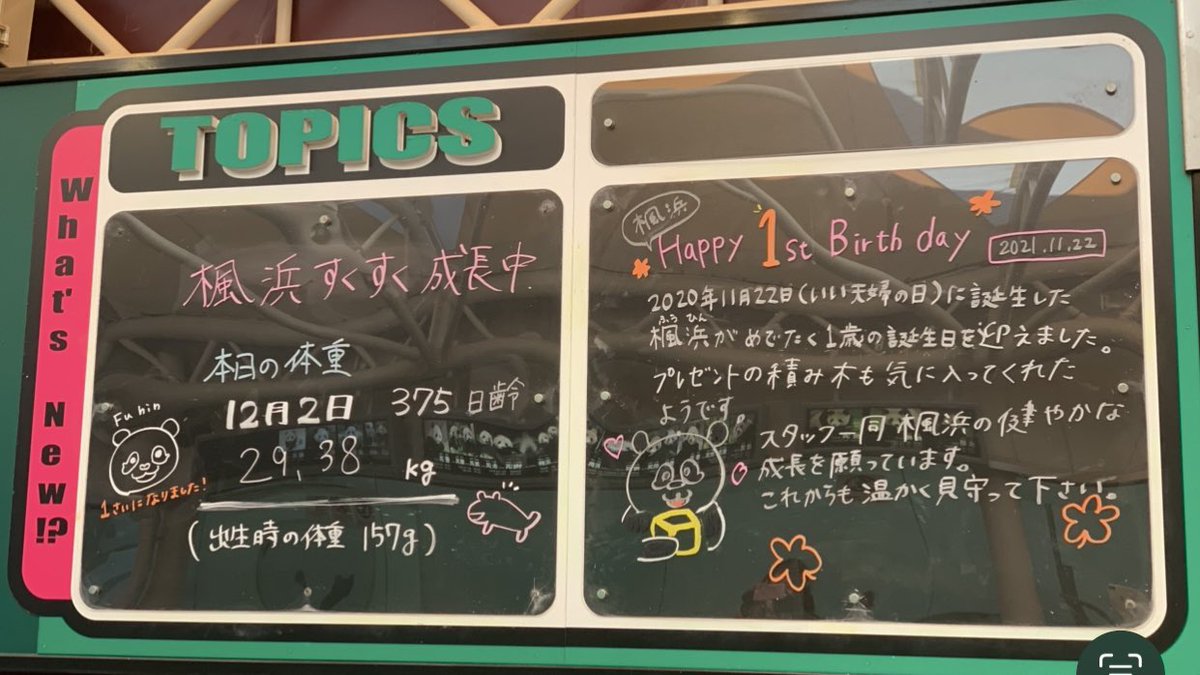 What's New!?
TOPICS
楓浜すくすく成長中
本日の体重
12月2日 375日齢
29.38 kg
(出生時の体重 157g)
Fu hin
1さいになりました!
楓浜
Happy 1st Birth day 2021.11.22
2020年11月22日(いい夫婦の日)に誕生した
ふう ひん
楓浜がめでたく1歳の誕生日を迎えました。
プレゼントの積み木も気に入ってくれた
ようです。
スタッフ一同 楓浜の健やかな
成長を願っています。
これからも温かく見守って下さい。